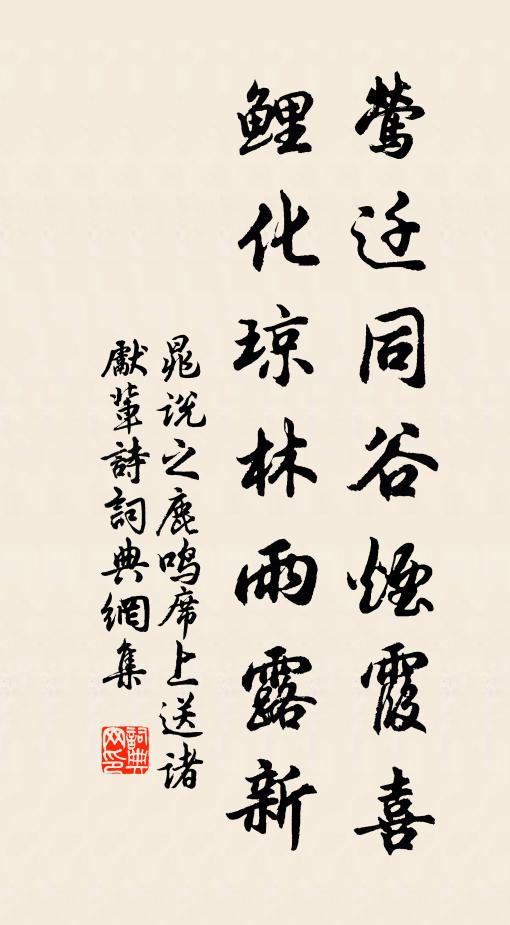 莺迁同谷烟霞喜
鲤化琼林雨露新
晁说之鹿鸣席上送诸
献辈詩詞典網集
詞典
网印